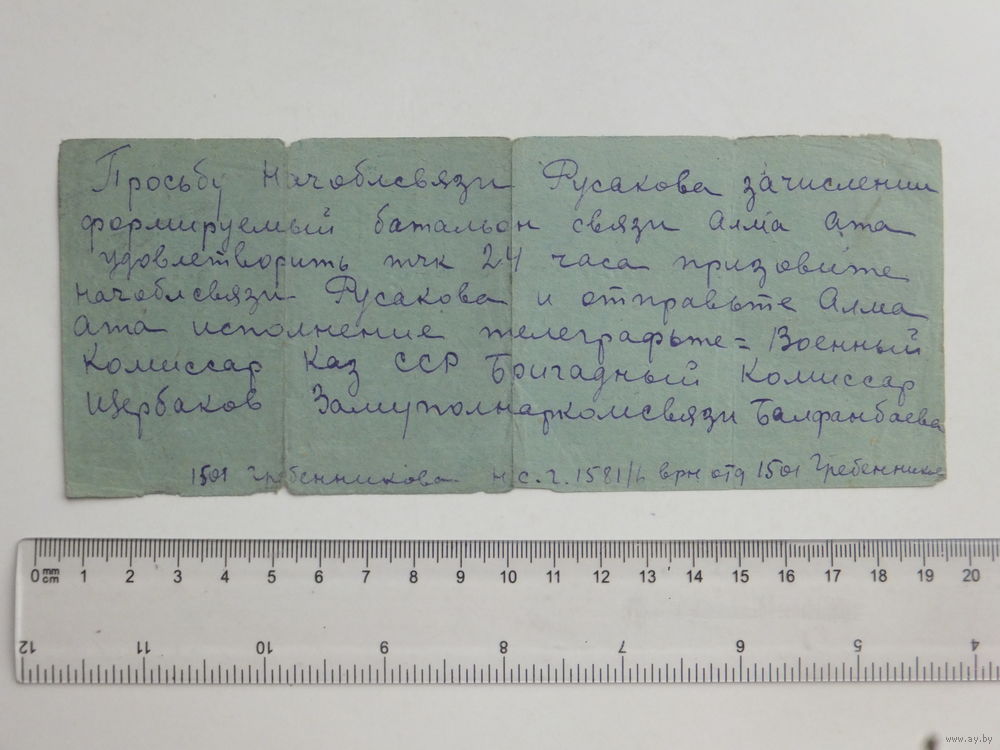 Просьбу Начоблсвязи Русакова зачислении
формируемый батальон связи Алма Ата
удовлетворить тчк 24 часа призовите
начоблсвязи Русакова и отправьте Алма
Ата исполнение телеграфьте = Военный
Комиссар Каз ССР Бригадный Комиссар
Щербаков Замуполнаркомсвязи Балфанбаева
1501 Гребенникова нс. г. 1581/ врн отд 1501 Гребенников
0 mm cm 1 2 3 4 5 6 7 8 9 10 11 12 13 14 15 16 17 18 19 20
12 11 10 9 8 7 6 5 4
www.ay.by